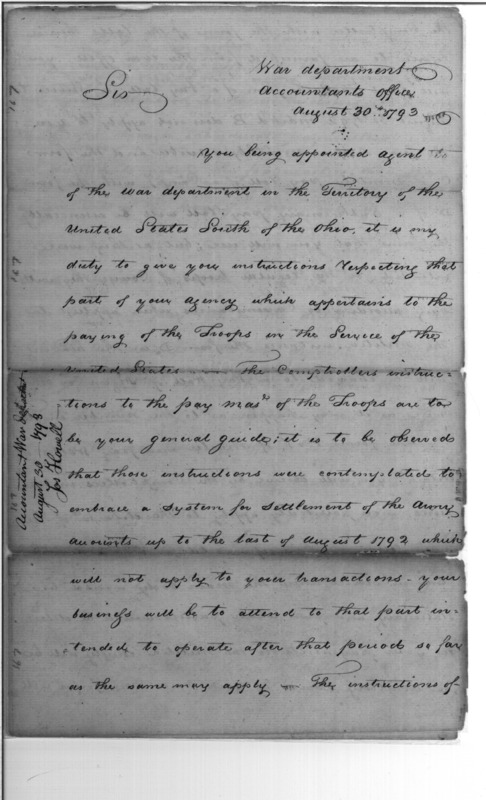 War department
Accountants Office
August 30th 1793
Sir
You being appointed agent
of the War department in the Territory of the
United States South of the Ohio, it is my
duty to give you instructions respecting that
part of your agency which appertains to the
paying of the Troops in the Service of the
United States — The Comptrollers instruc-
tions to the pay masr of the Troops are to
be your general guide; it is to be observed
that those instructions were contemplated to
embrace a System for Settlement of the Army
accounts up to the last of August 1792 which
will not apply to your transactions - your
business will be to attend to that part in-
tended to operate after that period so far
as the same may apply — The instructions of
Accountant War
August 30 1793
Jos Howell
167
167
167